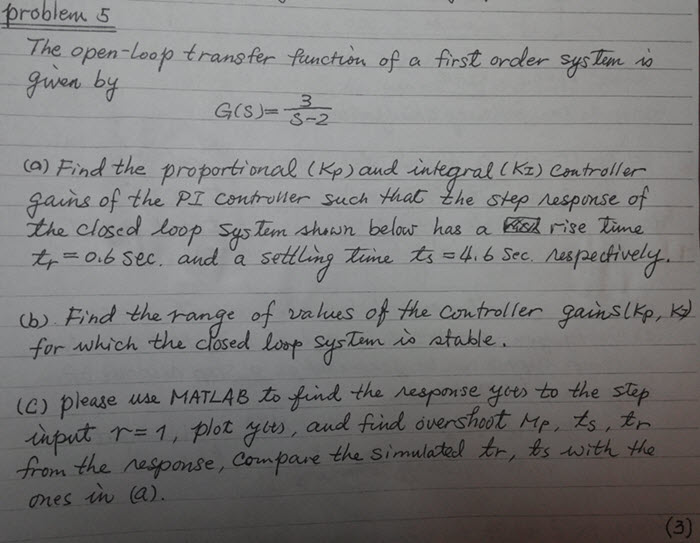 problem 5
The open-loop transfer function of a first order system is
given by
G(S)= 3/S-2
(a) Find the proportional (Kp) and integral (KI) Controller
gains of the PI controller such that the step response of
the closed loop system shown below has a rise time
tr = 0.6 sec. and a settling time ts = 4.6 Sec. respectively.
(b). Find the range of values of the controller gains (Kp, KI)
for which the closed loop system is stable.
(C) please use MATLAB to find the response y(t) to the step
input r = 1, plot y(t), and find overshoot Mp, ts, tr
from the response, compare the simulated tr, ts with the
ones in (a).
(3)